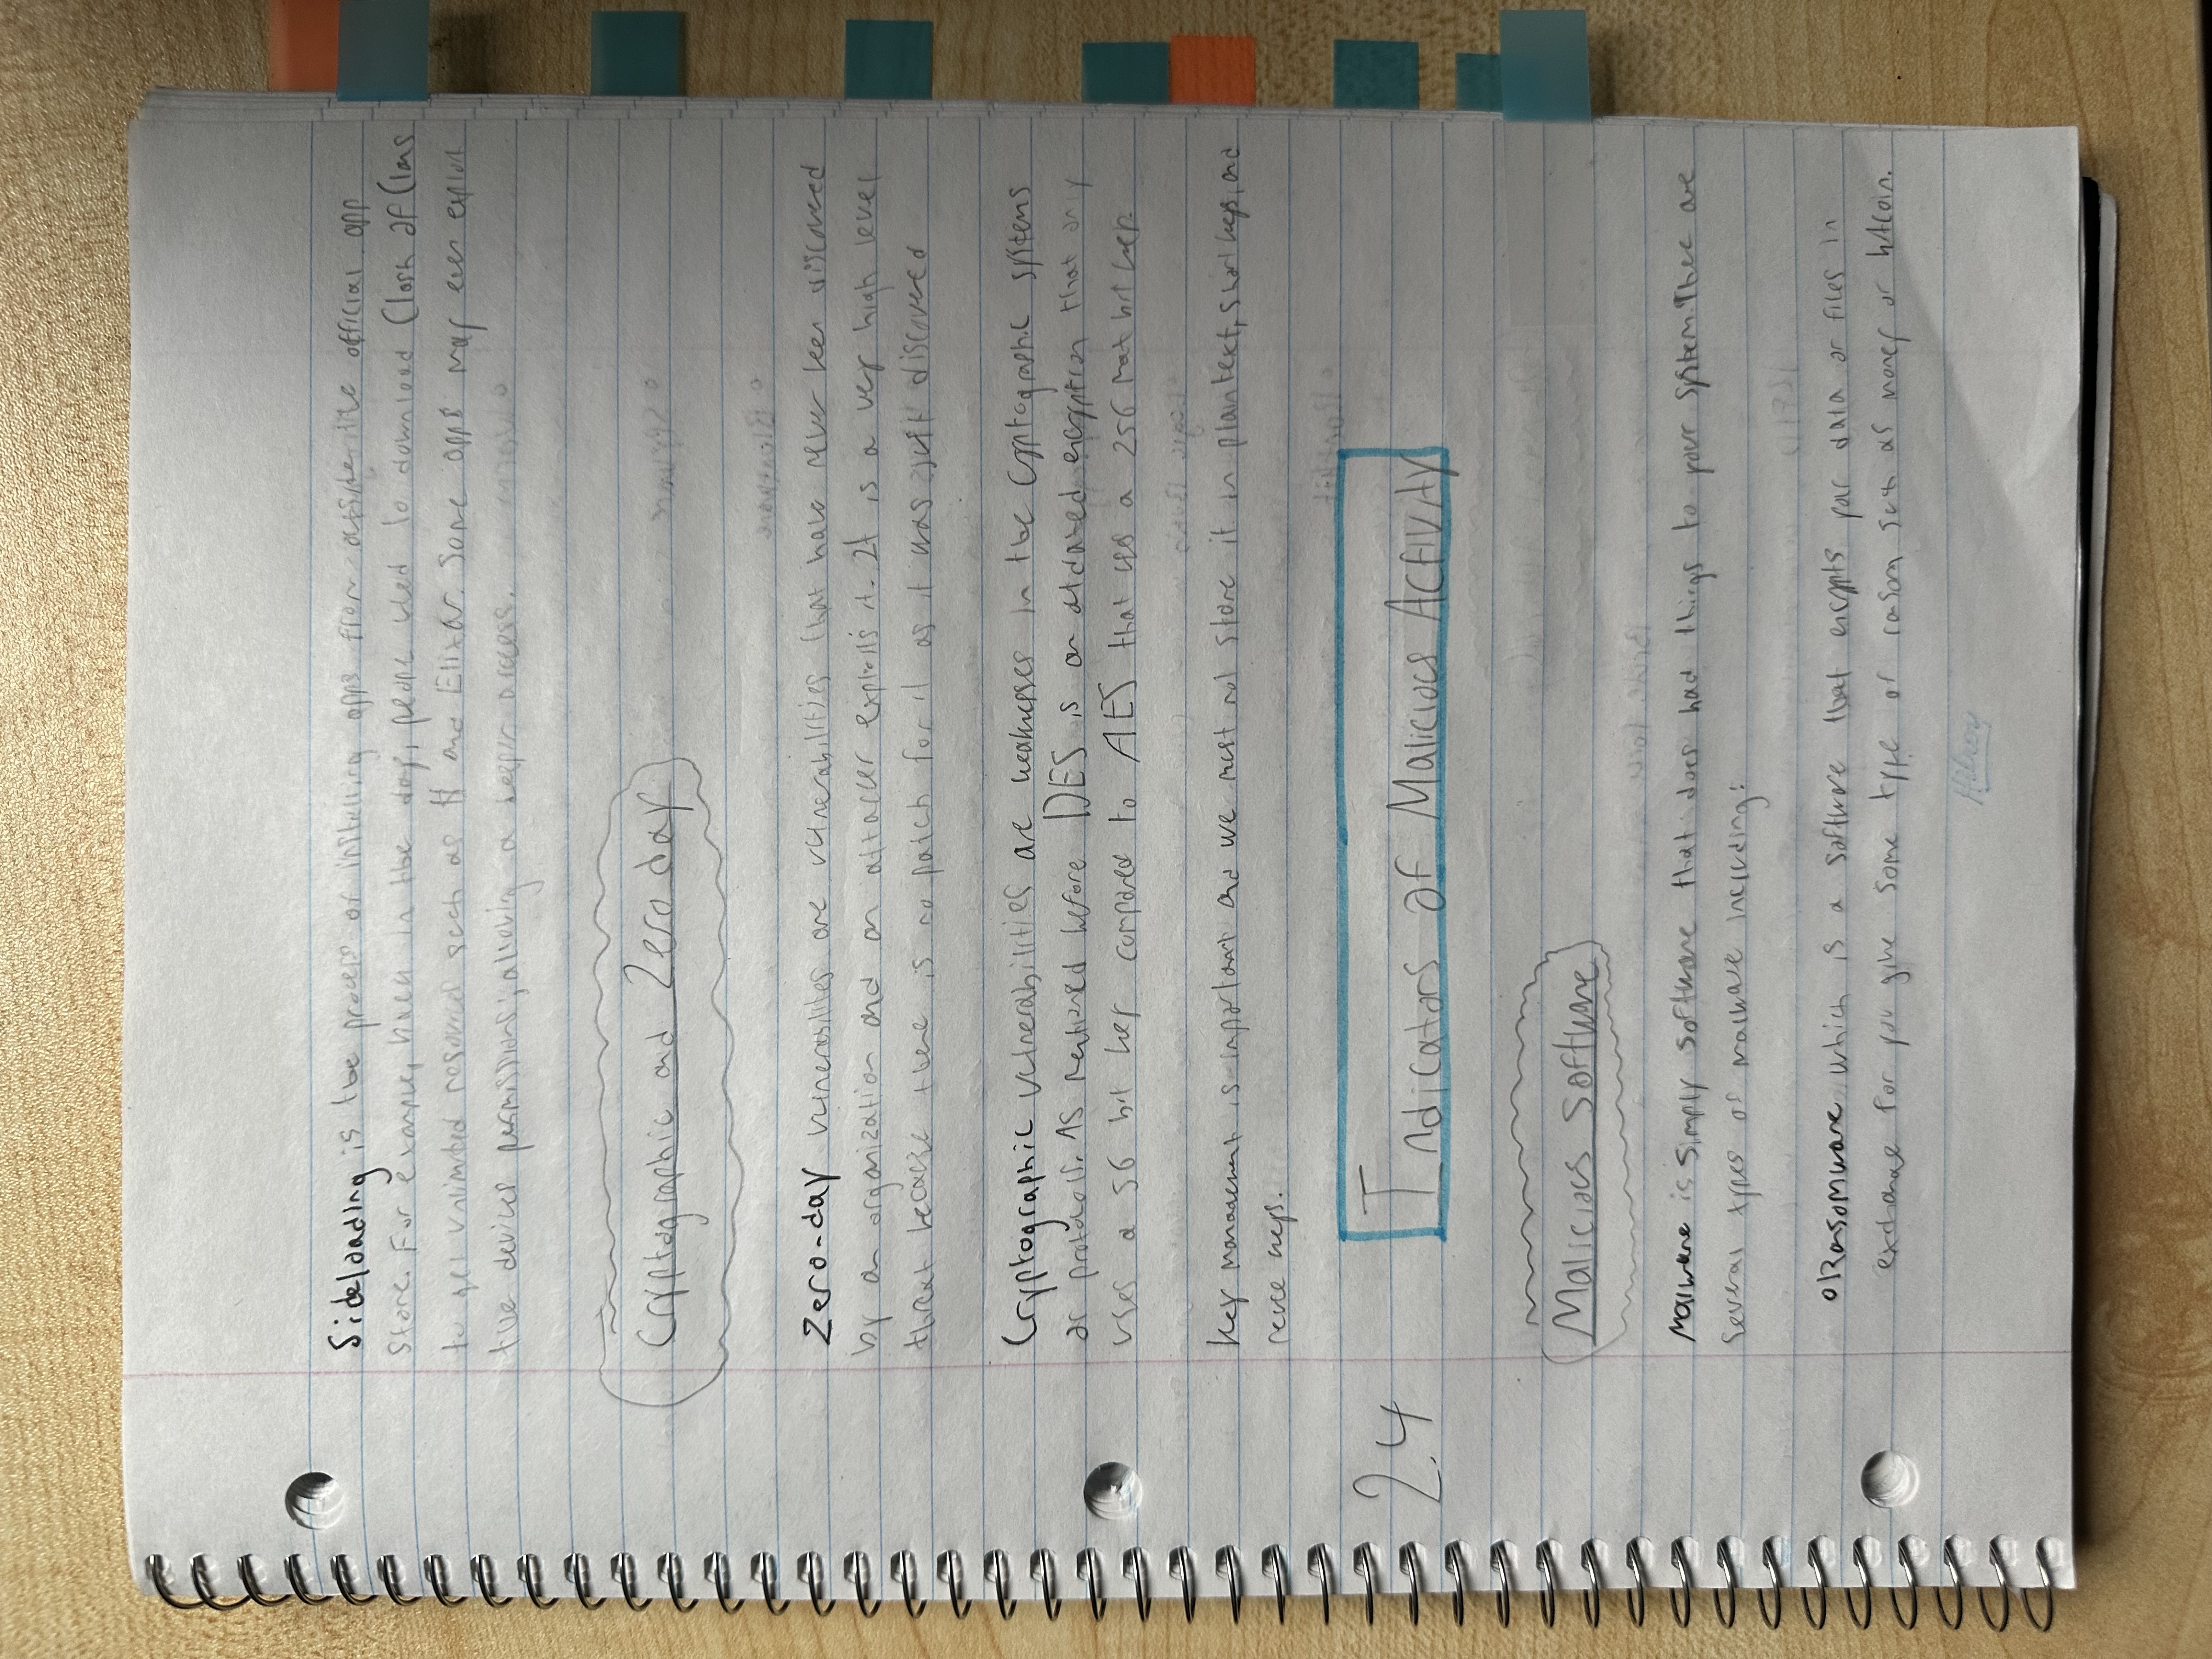 Sideloading is the process of installing apps from outside the official app
store. For example, back in the day, people used to download Clash of Clans
to get unlimited resources such as and Elixar. Some apps may even exploit
the devices permissions, allowing a deeper access.
Cryptographic and Zero day
Zero-day vulnerabilites are vulnerabilities that have never been discovered
by an organization and an attacker exploits it. It is a very high level
threat because there is no patch for it as it was just discovered
Cryptographic vulnerabilities are weaknesses in the cryptographic systems
or protocols. As mentioned before DES is an outdated encryption that only
uses a 56 bit key compared to AES that uses a 256 bit key.
Key management is important and we must not store it in plaintext, short keys, and
reuse keys.
2.4 Indicators of Malicious Activity
Malicious Software
Malware is simply software that does bad things to your system. There are
several types of malware including:
Ransomware which is a software that encrypts your data or files in
exchange for you give some type of ransom such as money or bitcoin.
Hilroy